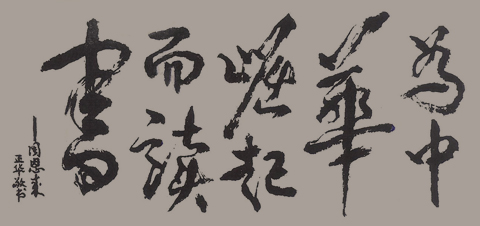 為中
華
崛起
而讀
書
—周恩來
正华敬书